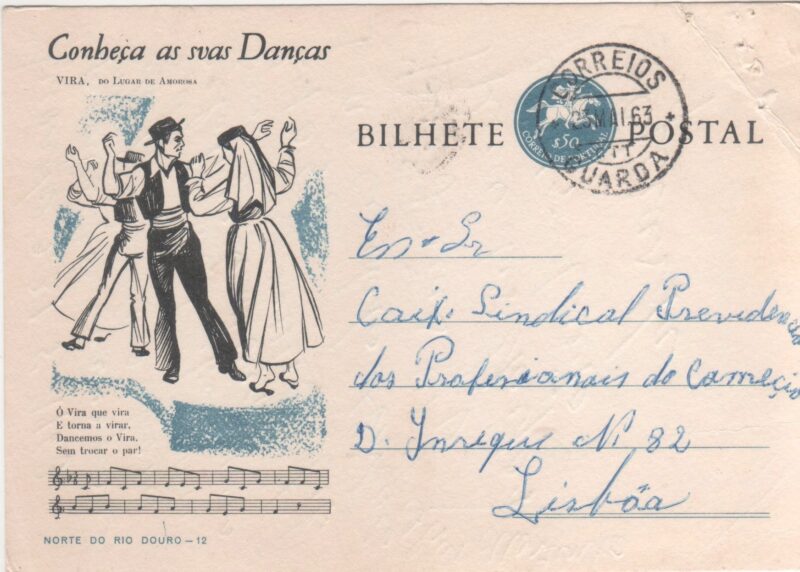 Conheça as suas Danças
VIRA, DO LUGAR DE AMOROSA
BILHETE POSTAL
$50
CORREIO DE PORTUGAL
CORREIOS
25 MAI. 63
CTT
GUARDA
Exº Sr
Caix. Sindical Previdencia
dos Profesionais do Comerçio
D. Inrequs Nº 82
Lisbôa
Ó Vira que vira
E torna a virar,
Dancemos o Vira,
Sem trocar o par!
NORTE DO RIO DOURO — 12